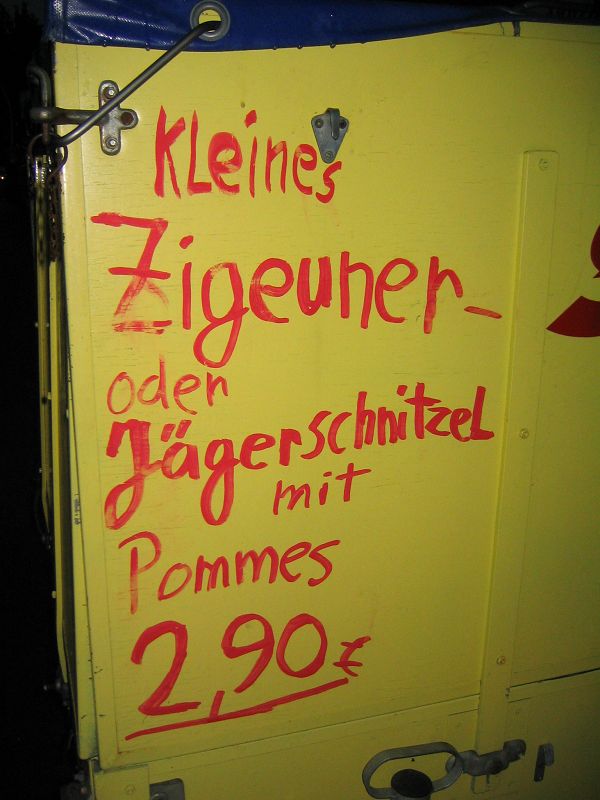 Kleines
Zigeuner-
oder
Jägerschnitzel
mit
Pommes
2,90€